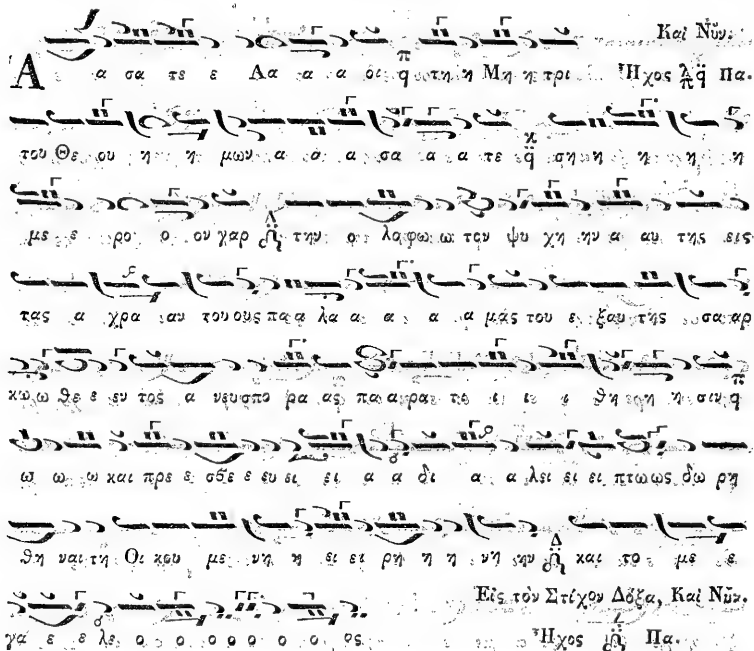 Καὶ Νῦν.
Α α σα τε ε Λα α α οι π q τη η Μη η τρι Ἦχος λ π q Πα.
του Θε ου η η μων α α α σα α α τε κ q ση η η η η
με ε ρο ο ου γαρ Δ την ο λο φω ω τον ψυ χη ην α αυ της εις
τας α χρα αν του ους πα α λα α α α α μάς του ε ξαυ της σα αρ
κω ω θε ε εν τος α νευ σπο ρα ας πα α ρα τε ι ι ι θη η η η σιν π q
ω ω ω και πρε ε ε σβε ε ε ευ ει ει α α δι α α λει ει ει πτω ως δω ρη
θη ναι τη Οι κου με νη η ει ει ρη η η νη ην Δ και το με ε
Εἰς τὸν Στίχον Δόξα, Καὶ Νῦν.
γα ε ε λε ο ο ο ο ο ο ο ος Ἦχος Πα.